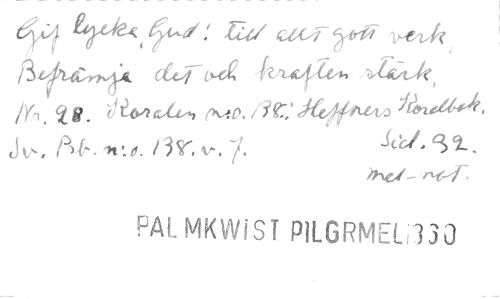 Gif lycka, Gud! till allt gott verk,
Befrämja det och kraften stärk,
Nr. 98. Koralen n:o. 138. i Hæffners Koralbok.
Sv. Ps. n:o. 138. v. 7. Sid. 92.
mel-not.
PALMKWIST PILGRMEL:330